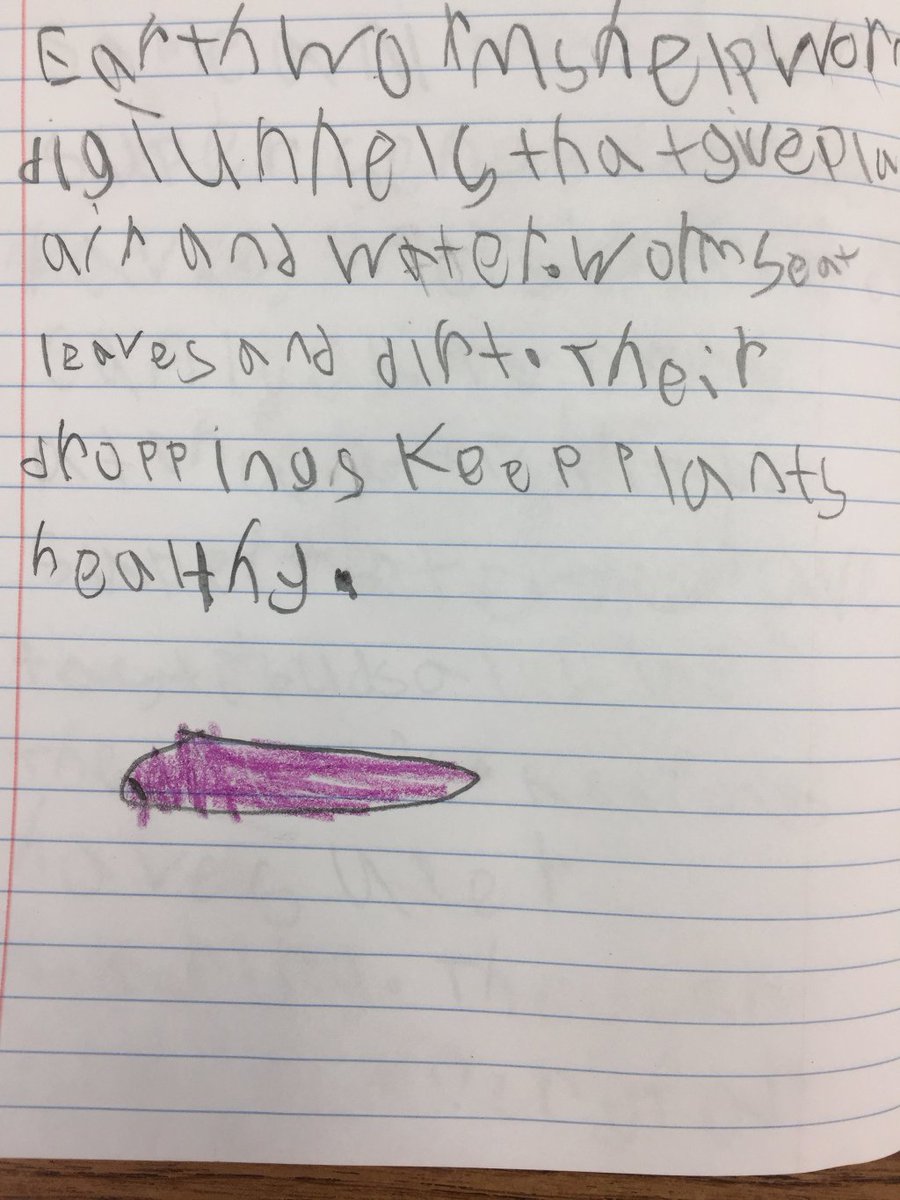 Earthworms help wor
dig Tunnels that give pla
air and water. worms eat
leaves and dirt. Their
droppings Keep plants
healthy.